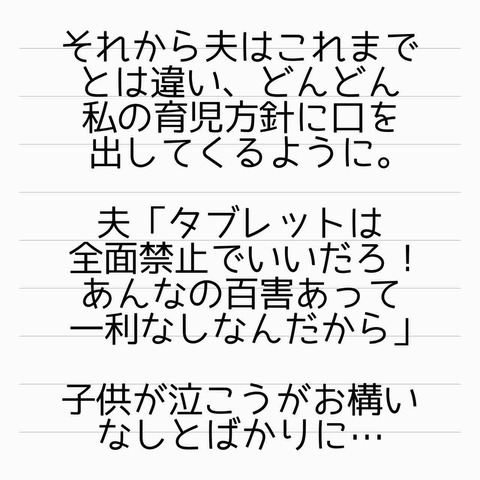 それから夫はこれまで
とは違い、どんどん
私の育児方針に口を
出してくるように。
夫「タブレットは
全面禁止でいいだろ！
あんなの百害あって
一利なしなんだから」
子供が泣こうがお構い
なしとばかりに…